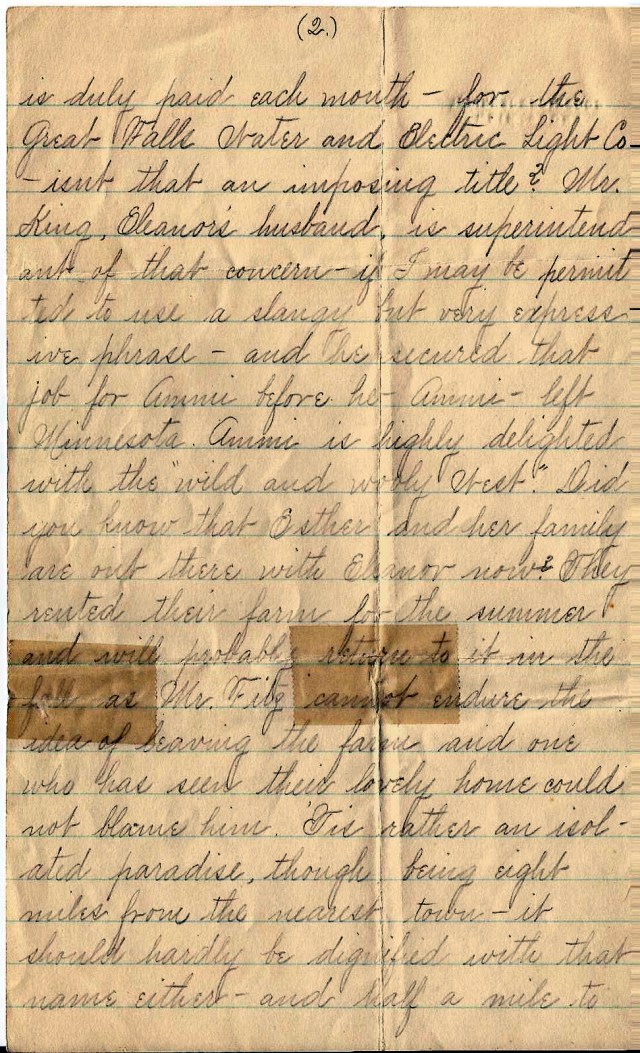 (2.)
is duly paid each month - for the
Great Falls Water and Electric Light Co-
- isnt that an imposing title? Mr.
King, Eleanor's husband, is superintend-
ant of that concern - if I may be permit
ted to use a slangy but very express-
ive phrase - and he secured that
job for Ammi before he - Ammi - left
Minnesota. Ammi is highly delighted
with the "wild and wooly West." Did
you know that Esther and her family
are out there with Eleanor now? They
rented their farm for the summer
and will probably return to it in the
fall as Mr. cannot endure the
idea of leaving the farm and one
who has seen their lovely home could
not blame him. 'Tis rather an isol-
ated paradise, though, being eight
miles from the nearest town - it
should hardly be dignified with that
name either - and half a mile to